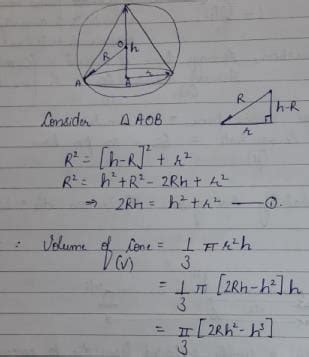 O h
R
A B r
Consider △AOB
R h-R
r
R² = [h-R]² + r²
R² = h² + R² - 2Rh + r²
⇒ 2Rh = h² + r² —— ①.
∴ Volume of Cone = 1/3 π r²h
(V)
= 1/3 π [2Rh-h²] h
= π/3 [2Rh² - h³]